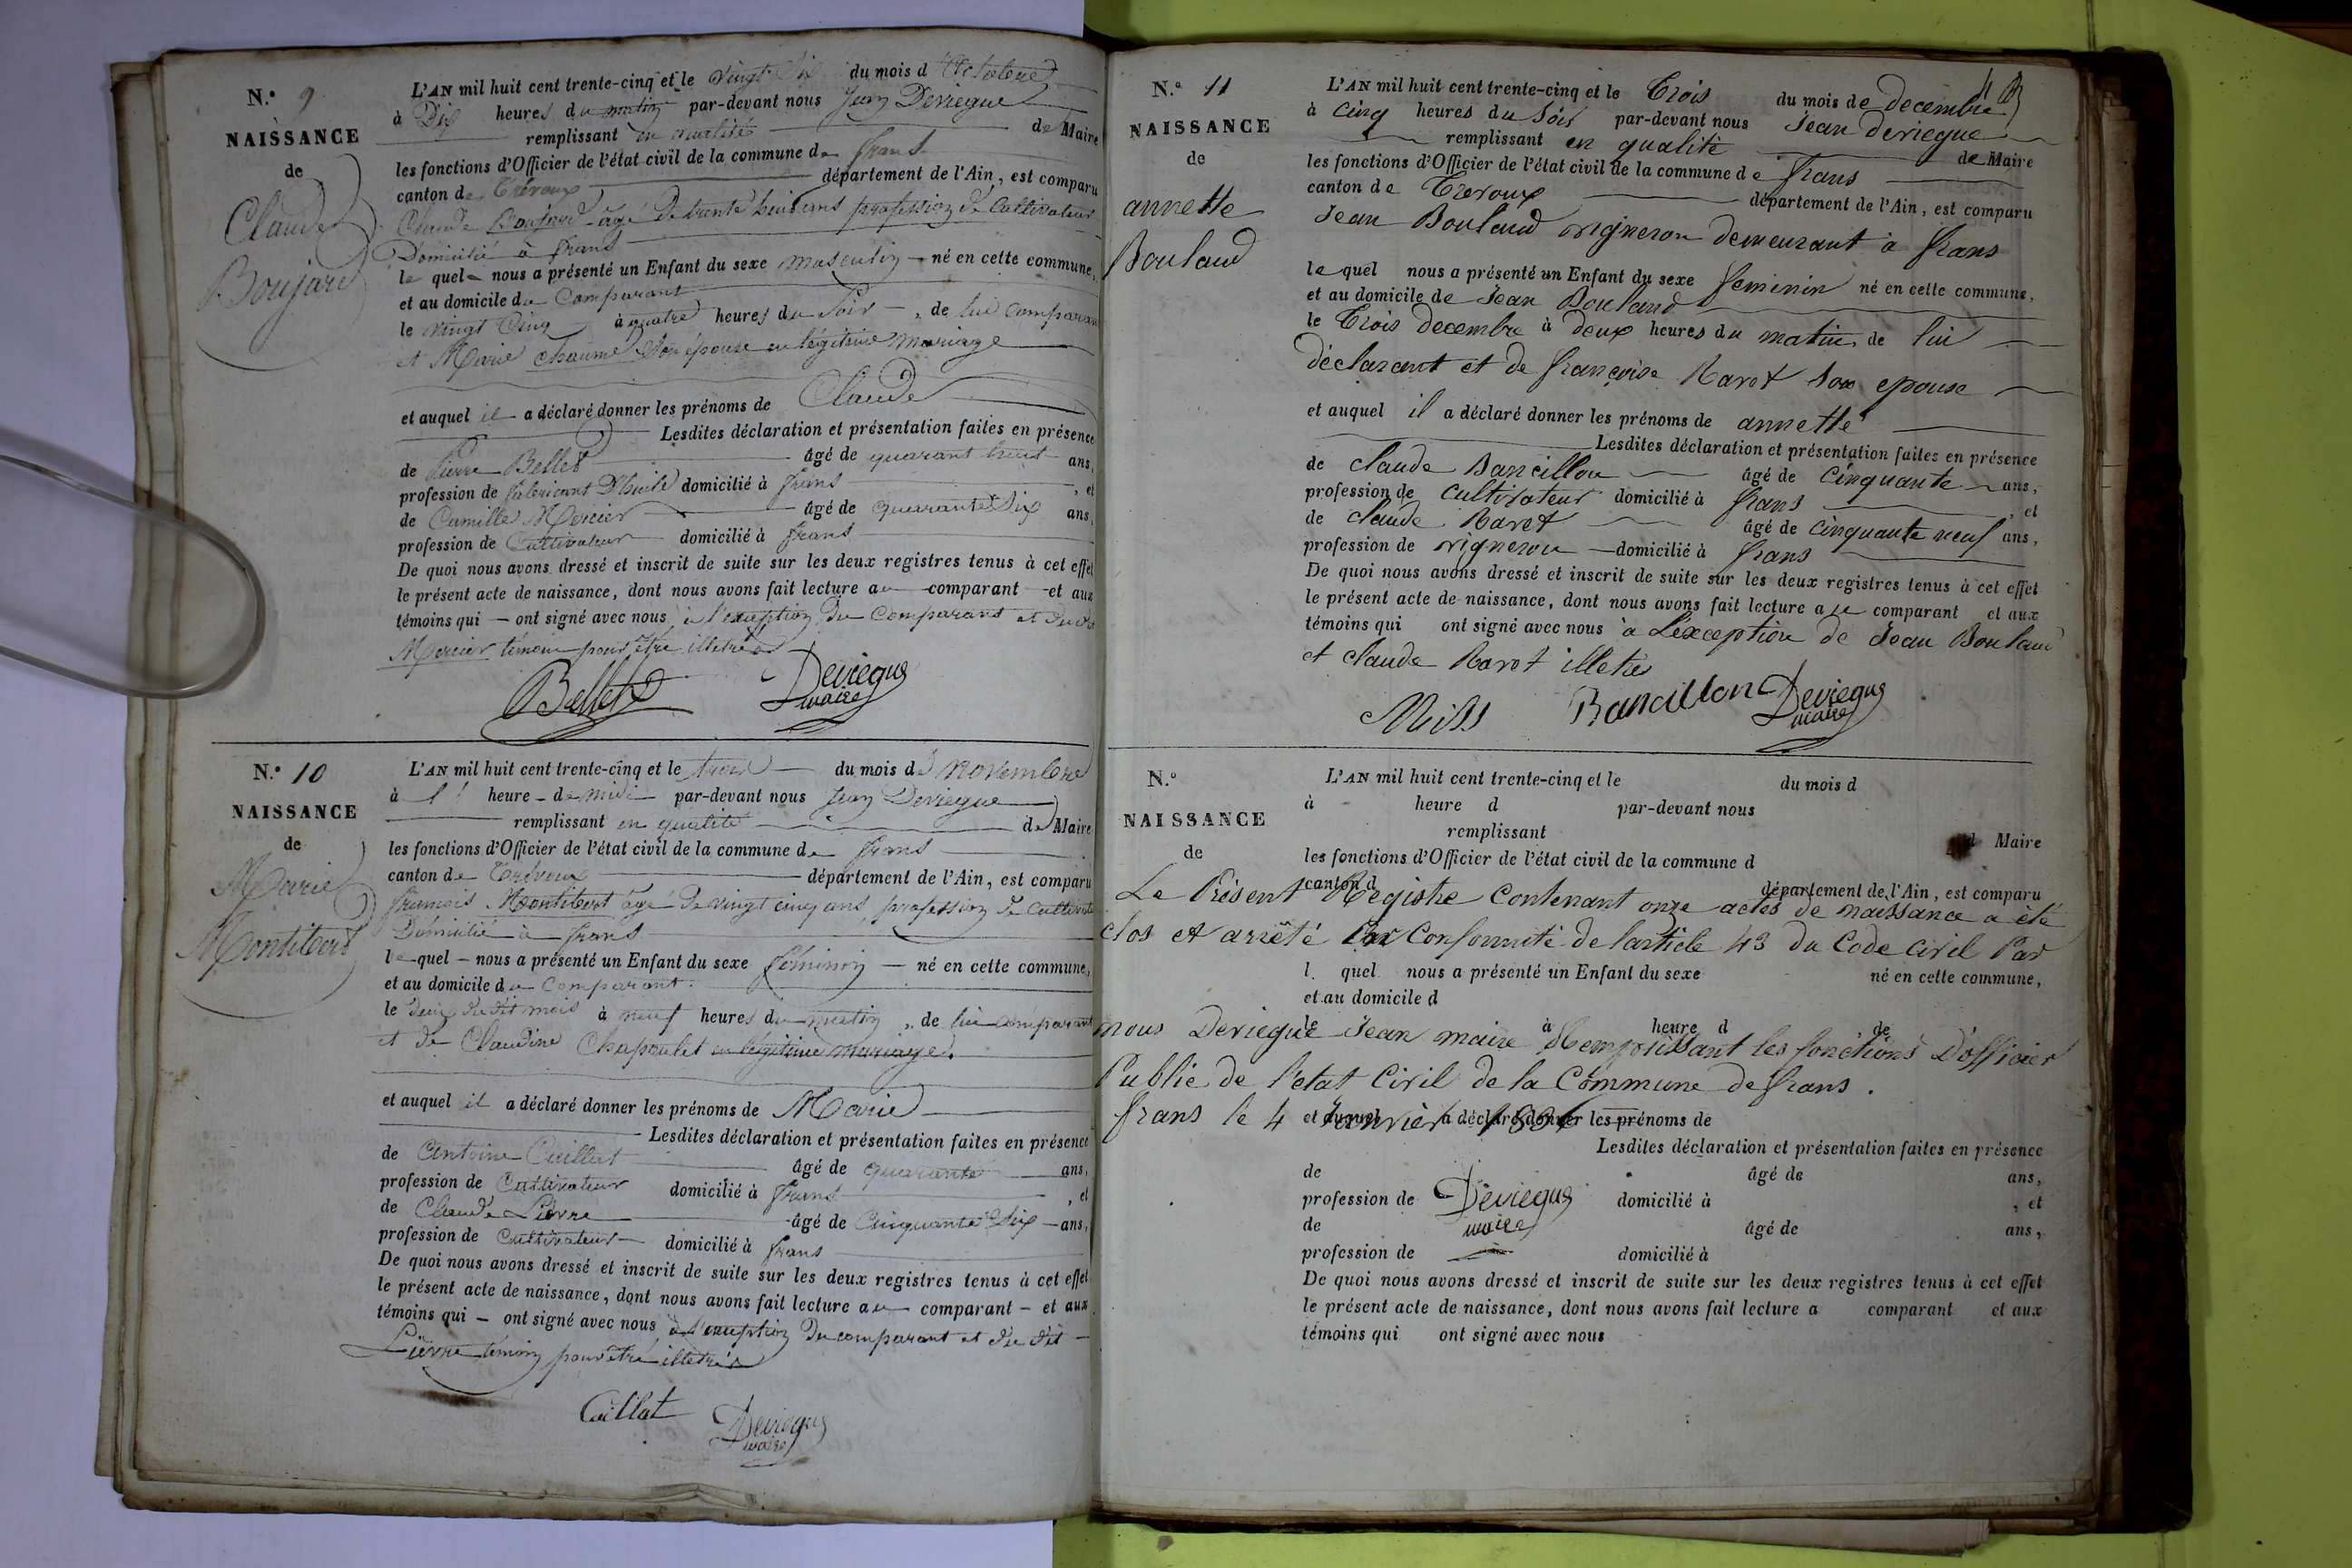 N.° 9
NAISSANCE
de
Claude
Boujard
L'AN mil huit cent trente-cinq et le vingt Six du mois d'Octobre
à Dix heures du matin par-devant nous Jean Deviegue
remplissant en qualité de Maire
les fonctions d'Officier de l'état civil de la commune de frans
canton de Trévoux département de l'Ain, est comparu
Claude Boujard âgé de trente huit ans profession de Cultivateur
Domicilié à frans
le quel nous a présenté un Enfant du sexe masculin né en cette commune,
et au domicile du Comparant
le vingt Cinq à quatre heures du Soir, de lui Comparant
et Marie chaume Son épouse en légitime mariage
et auquel il a déclaré donner les prénoms de Claude
Lesdites déclaration et présentation faites en présence
de Pierre Bellet âgé de quarant huit ans,
profession de fabricant D'huile domicilié à frans, et
de Camille Mercier âgé de quarante Six ans,
profession de Cultivateur domicilié à frans
De quoi nous avons dressé et inscrit de suite sur les deux registres tenus à cet effet
le présent acte de naissance, dont nous avons fait lecture au comparant et aux
témoins qui ont signé avec nous à l'exception du Comparant et dudit
Mercier témoin pour être illetrés
Bellet Deviegue
maire
N.° 10
NAISSANCE
de
Marie
Montibert
L'AN mil huit cent trente-cinq et le trois du mois de Novembre
à 1 heure de midi par-devant nous Jean Deviegue
remplissant en qualité de Maire
les fonctions d'Officier de l'état civil de la commune de frans
canton de Trévoux département de l'Ain, est comparu
françois Montibert âgé de vingt cinq ans, profession de Cultivate
Domicilié à frans
le quel nous a présenté un Enfant du sexe féminin né en cette commune,
et au domicile du Comparant.
le deux dudit mois à neuf heures du matin, de lui comparant
et de Claudine Chapoulet en légitime mariage.
et auquel il a déclaré donner les prénoms de Marie
Lesdites déclaration et présentation faites en présence
de Antoine Caillat âgé de quarante ans,
profession de Cultivateur domicilié à frans, et
de Claude Lièvre âgé de Cinquante Six ans,
profession de Cultivateur domicilié à frans
De quoi nous avons dressé et inscrit de suite sur les deux registres tenus à cet effet
le présent acte de naissance, dont nous avons fait lecture au comparant et aux
témoins qui ont signé avec nous à l'exception du comparant et du dit
Lièvre témoin pour être illetrés
Caillat Deviegue
maire
N.° 11
NAISSANCE
de
annette
Bouland
L'AN mil huit cent trente-cinq et le Trois du mois de decembre
à cinq heures du Soir par-devant nous Jean deviegue
remplissant en qualité de Maire
les fonctions d'Officier de l'état civil de la commune de frans
canton de Trevoux département de l'Ain, est comparu
Jean Bouland vigneron demeurant à frans
le quel nous a présenté un Enfant du sexe feminin né en cette commune,
et au domicile de Jean Bouland
le Trois decembre à deux heures du matin, de lui
déclarant et de françoise Ravet Son epouse
et auquel il a déclaré donner les prénoms de annette
Lesdites déclaration et présentation faites en présence
de claude Bancillon âgé de Cinquante ans,
profession de cultivateur domicilié à frans, et
de claude Ravet âgé de cinquante neuf ans,
profession de vigneron domicilié à frans
De quoi nous avons dressé et inscrit de suite sur les deux registres tenus à cet effet
le présent acte de naissance, dont nous avons fait lecture au comparant et aux
témoins qui ont signé avec nous à L'exception de Jean Bouland
et claude Ravet illetrés
Bancillon Deviegue
maire
N.°
NAISSANCE
de
L'AN mil huit cent trente-cinq et le du mois d
à heure d par-devant nous
remplissant d Maire
les fonctions d'Officier de l'état civil de la commune d
canton d département de l'Ain, est comparu
Le Présent Régistre Contenant onze actes de naissance a été
clos et arrêté Par Conformité de l'article 43 du Code Civil Par
l quel nous a présenté un Enfant du sexe né en cette commune,
et au domicile d
le à heure d de
nous Deviegue Jean maire Remplissant les fonctions D'officier
Public de l'état Civil de la Commune de frans.
frans le 4 Janvier 1836
et auquel a déclaré donner les prénoms de
Lesdites déclaration et présentation faites en présence
de âgé de ans,
profession de domicilié à , et
Deviegue
maire
de âgé de ans,
profession de domicilié à
De quoi nous avons dressé et inscrit de suite sur les deux registres tenus à cet effet
le présent acte de naissance, dont nous avons fait lecture a comparant et aux
témoins qui ont signé avec nous